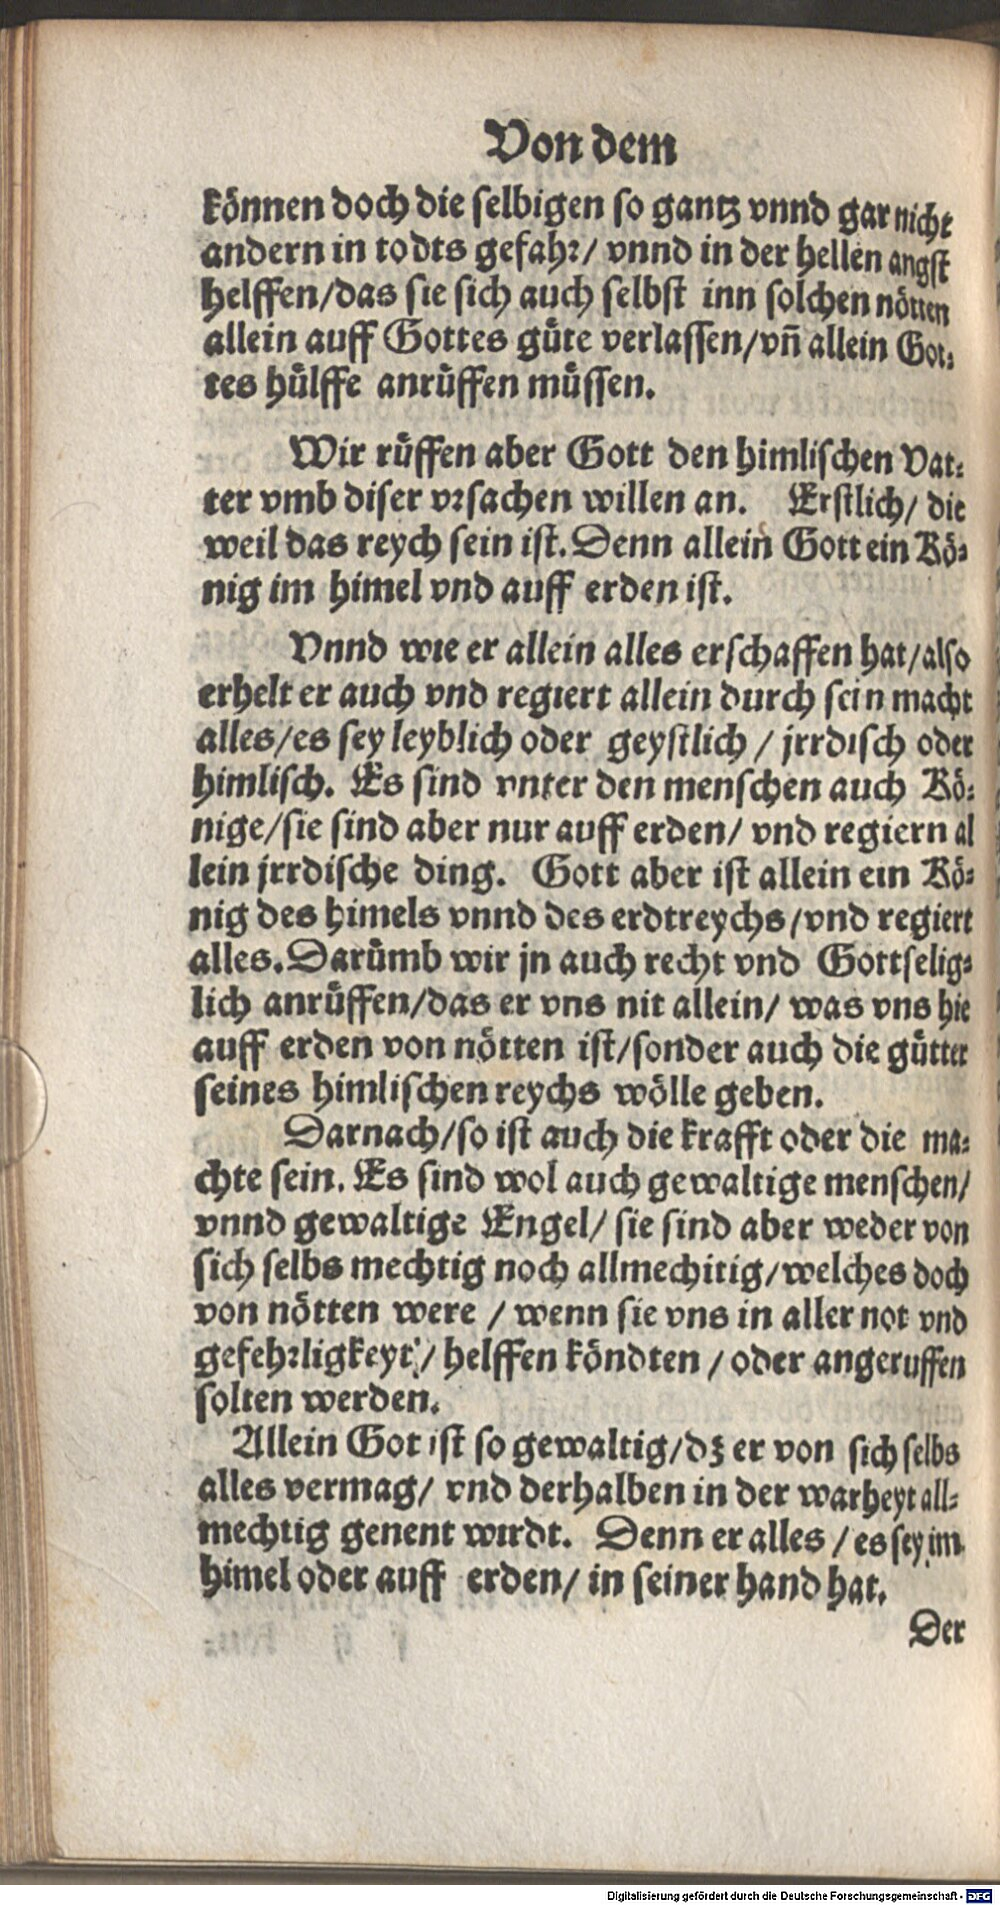 Von dem
können doch die selbigen so gantz vnnd gar nicht
andern in todts gefahr/ vnnd in der hellen angst
helffen/das sie sich auch selbst inn solchen nötten
allein auff Gottes güte verlassen/vñ allein Got⸗
tes hülffe anrüffen müssen.
Wir rüffen aber Gott den himlischen Vat⸗
ter vmb diser vrsachen willen an. Erstlich/ die
weil das reych sein ist. Denn allein Gott ein Kö⸗
nig im himel vnd auff erden ist.
Vnnd wie er allein alles erschaffen hat/also
erhelt er auch vnd regiert allein durch sein macht
alles/es sey leyblich oder geystlich / jrrdisch oder
himlisch. Es sind vnter den menschen auch Kö⸗
nige/sie sind aber nur auff erden/ vnd regiern al
lein jrrdische ding. Gott aber ist allein ein Kö⸗
nig des himels vnnd des erdtreychs/vnd regiert
alles. Darümb wir jn auch recht vnd Gottselig⸗
lich anrüffen/das er vns nit allein/ was vns hie
auff erden von nötten ist/sonder auch die gütter
seines himlischen reychs wölle geben.
Darnach/so ist auch die krafft oder die ma⸗
chte sein. Es sind wol auch gewaltige menschen/
vnnd gewaltige Engel/ sie sind aber weder von
sich selbs mechtig noch allmechitig/welches doch
von nötten were / wenn sie vns in aller not vnd
gefehrligkeyt / helffen köndten / oder angeruffen
solten werden.
Allein Got ist so gewaltig/dz er von sich selbs
alles vermag/ vnd derhalben in der warheyt all⸗
mechtig genent wirdt. Denn er alles / es sey im
himel oder auff erden/ in seiner hand hat.
Der
Digitalisierung gefördert durch die Deutsche Forschungsgemeinschaft - DFG